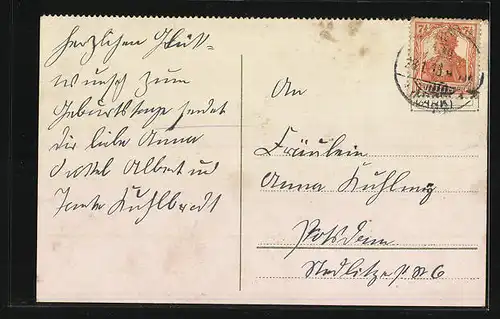 Herzlichen Glück-
wunsch zum
Geburtstage sendet
dir liebe Anna
Onkel Albert und
Tante Kuhlbrodt
7½ 7½
An
Fräulein
Anna Kuhlmey
Potsdam
Nedlitzerstr 6
(MARK)